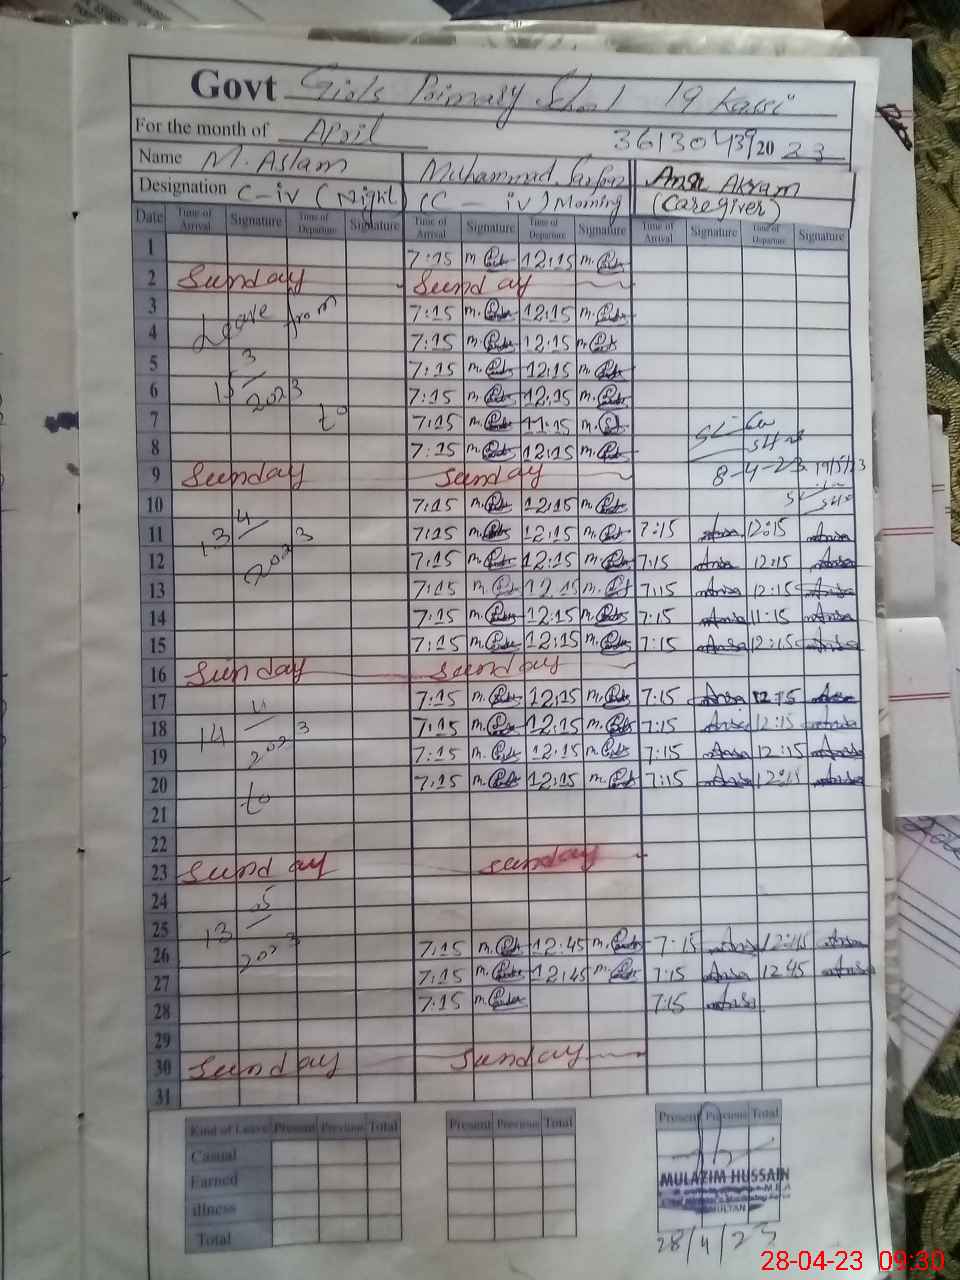 Govt Girls Primary School 19 Kassi
For the month of April 36130439 20 23
Name M. Aslam Muhammad Sarfraz Ansa Akram
Designation C-iv (Night) (C - iv) Morning (Caregiver)
Date Time of Arrival Signature Time of Departure Signature Time of Arrival Signature Time of Departure Signature Time of Arrival Signature Time of Departure Signature
1 7:15 12:15
2 Sunday Sunday
3 Leave from 7:15 12:15
4 7:15 12:15
5 3 7:15 12:15
6 15 2023 7:15 12:15
7 to 7:15 11:15
8 7:15 12:15
9 Sunday Sunday 8-4-23
10 4 7:15 12:15
11 13 2023 7:15 12:15 7:15 Ansa 12:15 Ansa
12 7:15 12:15 7:15 Ansa 12:15 Ansa
13 7:15 12:15 7:15 Ansa 12:15 Ansa
14 7:15 12:15 7:15 Ansa 11:15 Ansa
15 7:15 12:15 7:15 Ansa 12:15 Ansa
16 Sunday Sunday
17 7:15 12:15 7:15 Ansa 12:15 Ansa
18 14 2023 7:15 12:15 7:15 Ansa 12:15 Ansa
19 7:15 12:15 7:15 Ansa 12:15 Ansa
20 7:15 12:15 7:15 Ansa 12:15 Ansa
21 to
22
23 Sunday Sunday
24 5
25 13
26 2023 7:15 12:45 7:15 Ansa 12:45 Ansa
27 7:15 12:45 7:15 Ansa 12:45 Ansa
28 7:15 7:15 Ansa
29
30 Sunday Sunday
31
Kind of Leave Present Previous Total Present Previous Total Present Previous Total
Casual
Earned
illness
Total
MULAZIM HUSSAIN
M.E.A
MULTAN
28/4/23
28-04-23 09:30